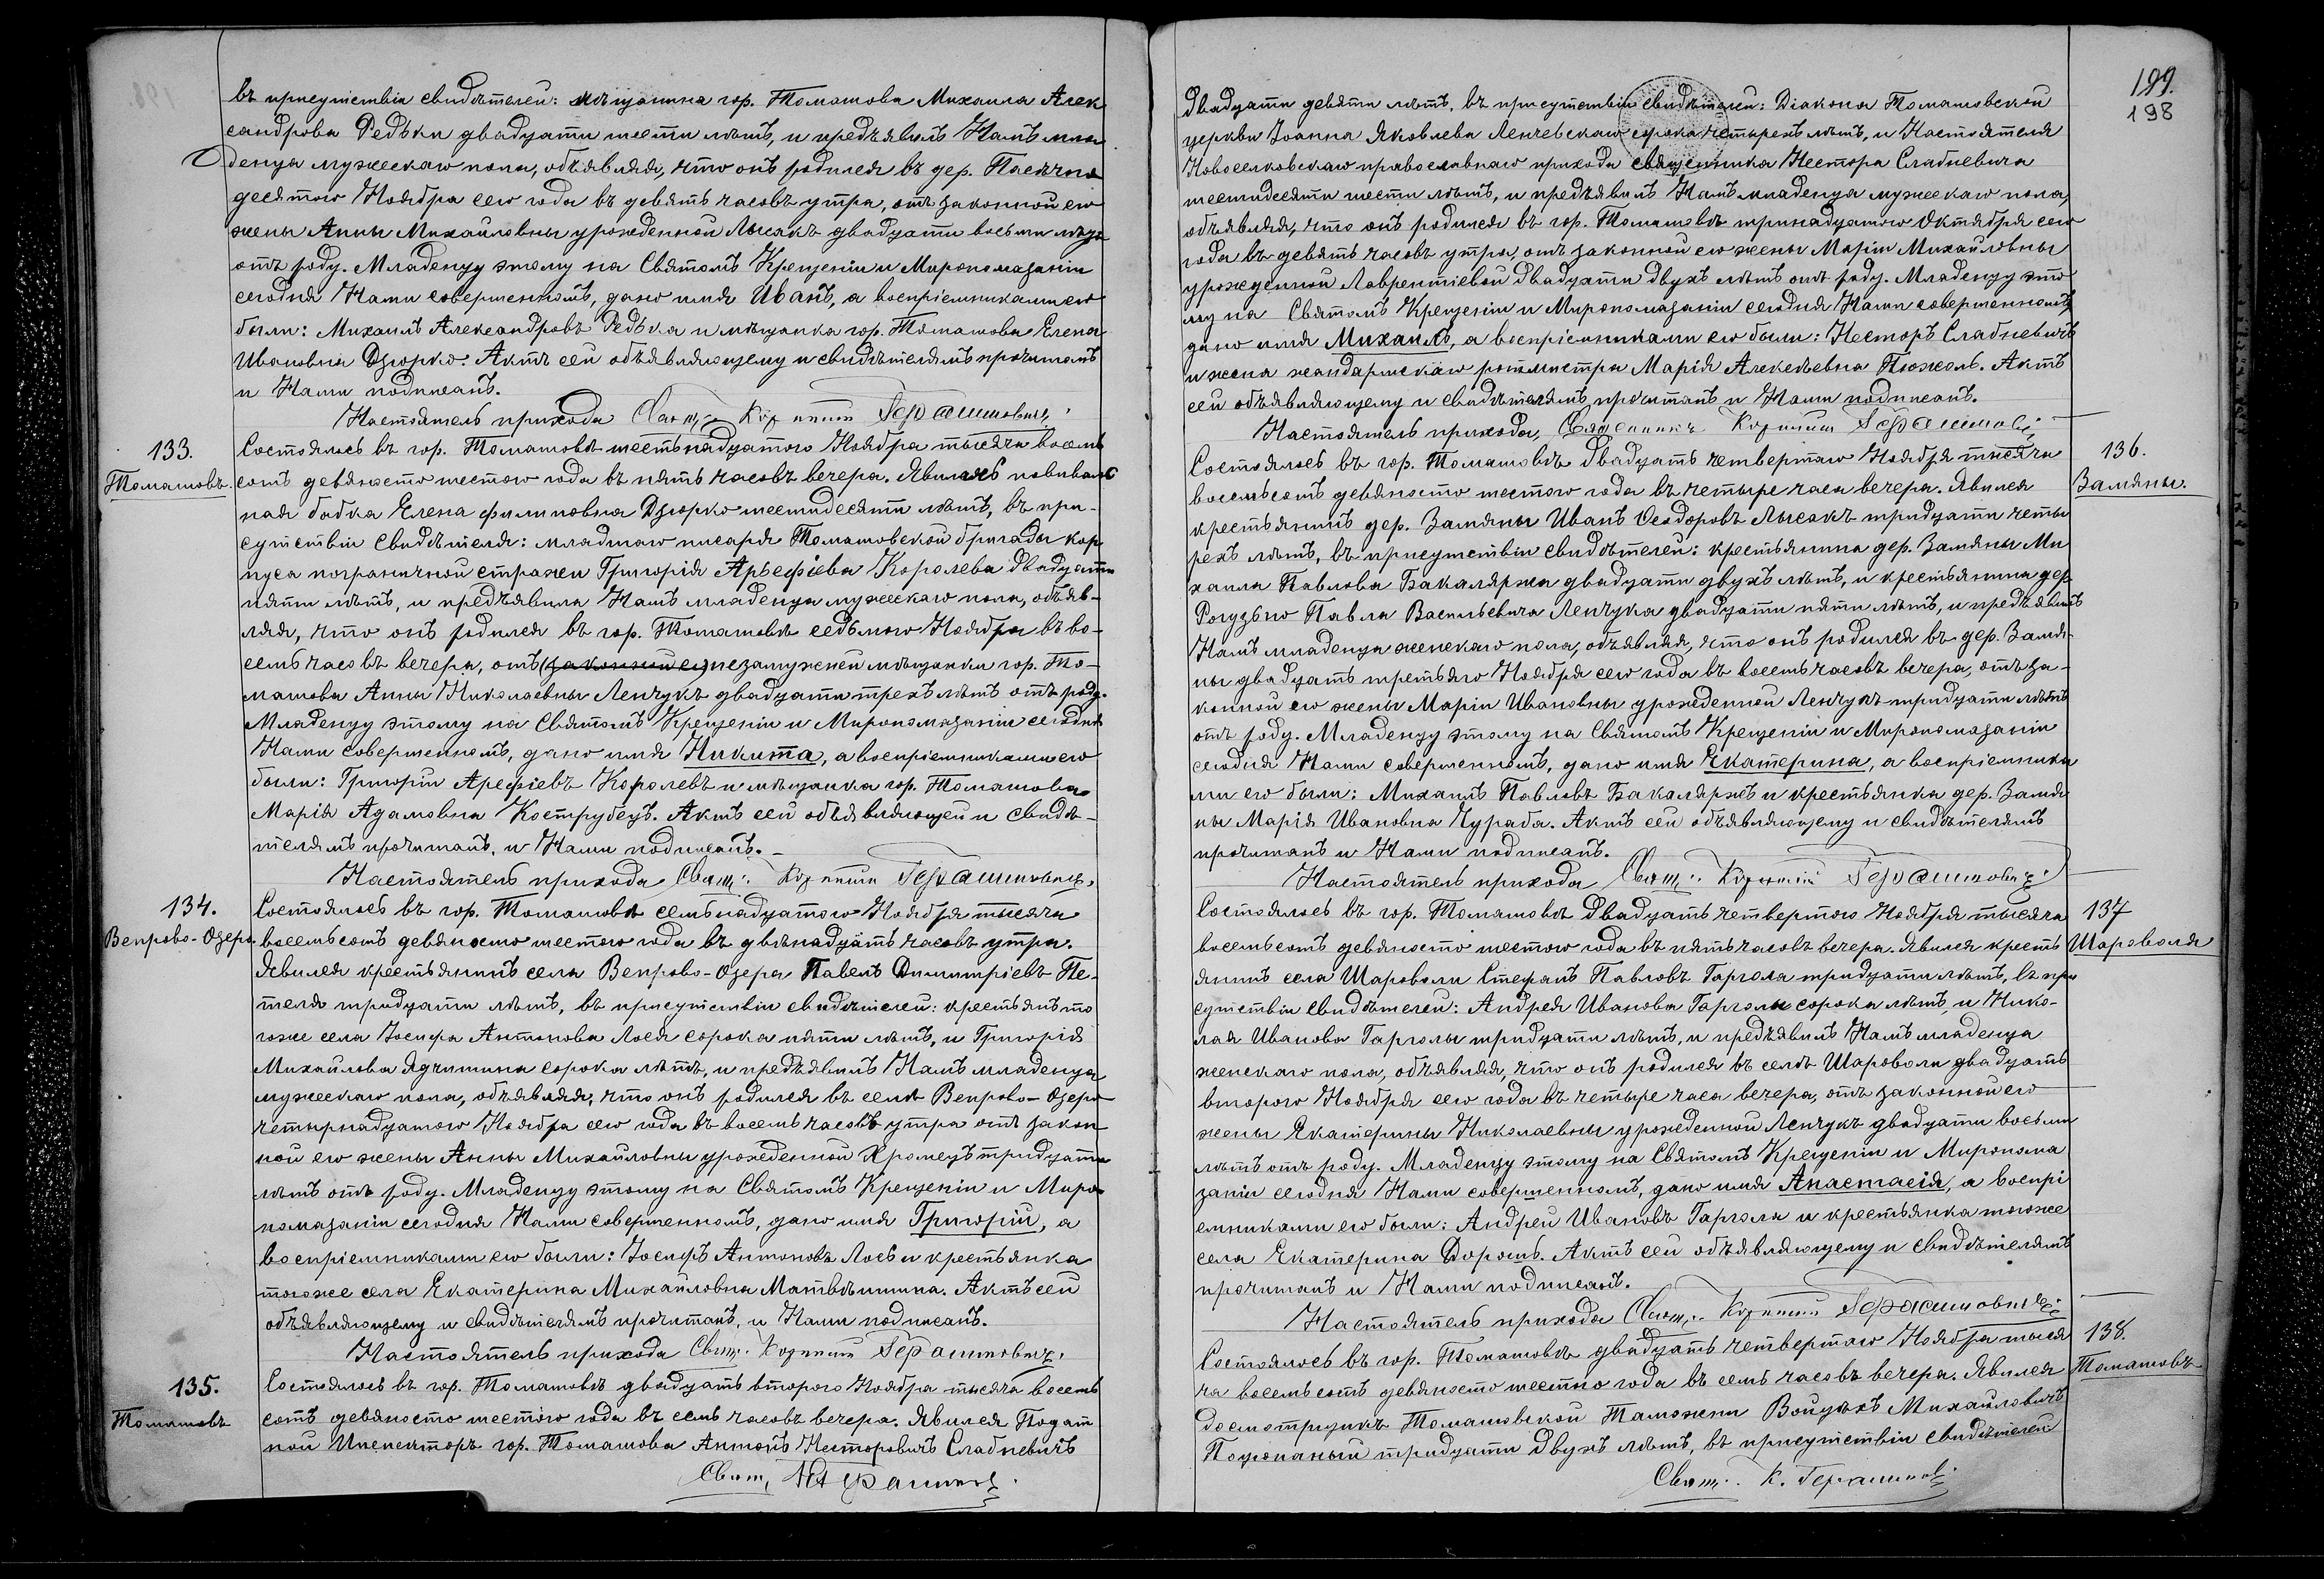 въ присутствіи свидѣтелей: мѣщанина гор. Томашова Михаила Алек
сандрова Редьки двадцати шести лѣтъ, и предъявилъ Намъ мла
денца мужескаго пола, объявляя, что онъ родился въ дер. Пасѣчно
десятого Ноября сего года въ девять часовъ утра, отъ законной его
жены Анны Михайловны урожденной Лысакъ двадцати восьми лѣтъ
отъ роду. Младенцу этому на Святомъ Крещеніи и Миропомазаніи
сегодня Нами совершенномъ, дано имя Иванъ, а воспріемниками его
были: Михаилъ Александровъ Редька и мѣщанка гор. Томашова Елена
Ивановна Дзюрко. Актъ сей объявляющему и свидѣтелямъ прочитанъ
и Нами подписанъ.
Настоятель прихода Свящ.
133.
Томашовъ.
Состоялось въ гор. Томашовѣ шестьнадцатого Ноября тысяча восемь
сотъ девяносто шестого года въ пять часовъ вечера. Явилась повиваль
ная бабка Елена Филиповна Дзюрко шестидесяти лѣтъ, въ при-
сутствіи свидѣтеля: младшаго писаря Томашовской бригады кор
пуса пограничной стражи Григорія Арефіева Королева двадцати
пяти лѣтъ, и предъявила Намъ младенца мужескаго пола, объяв-
ляя, что онъ родился въ гор. Томашовѣ седьмого Ноября въ во-
семь часовъ вечера, отъ (законной его) незамужней мѣщанки гор. То-
машова Анны Николаевны Ленчукъ двадцати трехъ лѣтъ отъ роду.
Младенцу этому на Святомъ Крещеніи и Миропомазаніи сегодня
Нами совершенномъ, дано имя Никита, а воспріемниками его
были: Григорій Арефіевъ Королевъ и мѣщанка гор. Томашова
Марія Адамовна Кострубецъ. Актъ сей объявляющей и свидѣ-
телямъ прочитанъ, и Нами подписанъ.
Настоятель прихода Свящ.
134.
Вепрово-Озеро.
Состоялось въ гор. Томашовѣ семьнадцатого Ноября тысяча
восемьсотъ девяносто шестого года въ двѣнадцать часовъ утра.
Явился крестьянинъ села Вепрово-Озера Павелъ Димитріевъ Пе-
теля тридцати лѣтъ, въ присутствіи свидѣтелей: крестьянъ то
гоже села Іосифа Антонова Лося сорока пяти лѣтъ, и Григорія
Михайлова Ядчишина сорока лѣтъ, и предъявилъ Намъ младенца
мужескаго пола, объявляя, что онъ родился въ селѣ Вепрово-Озеро
четырнадцатого Ноября сего года въ восемь часовъ утра отъ закон
ной его жены Анны Михайловны урожденной Кромецъ тридцати
лѣтъ отъ роду. Младенцу этому на Святомъ Крещеніи и Миро
помазаніи сегодня Нами совершенномъ, дано имя Григорій, а
воспріемниками его были: Іосифъ Антоновъ Лось и крестьянка
тогоже села Екатерина Михайловна Матвѣишина. Актъ сей
объявляющему и свидѣтелямъ прочитанъ, и Нами подписанъ.
Настоятель прихода Свящ.
135.
Томашовъ
Состоялось въ гор. Томашовѣ двадцать второго Ноября тысяча восемь
сотъ девяносто шестого года въ семь часовъ вечера. Явился Подат
ной Инспекторъ гор. Томашова Антонъ Несторовичъ Сладневичъ
Свящ.
199.
198
двадцати девяти лѣтъ, въ присутствіи свидѣтелей: Діакона Томашовской
церкви Іоанна Яковлева Ленчевскаго сорока четырехъ лѣтъ, и Настоятеля
Новоселковскаго православнаго прихода священника Нестора Сладневича
шестидесяти шести лѣтъ, и предъявилъ Намъ младенца мужескаго пола,
объявляя, что онъ родился въ гор. Томашовѣ тринадцатого Октября сего
года въ девять часовъ утра, отъ законной его жены Маріи Михайловны
урожденной Лаврентіевой двадцати двухъ лѣтъ отъ роду. Младенцу это
му на Святомъ Крещеніи и Миропомазаніи сегодня Нами совершенномъ,
дано имя Михаилъ, а воспріемниками его были: Несторъ Сладневичъ
и жена жандармскаго ротмистра Марія Алексѣевна Пюжоль. Актъ
сей объявляющему и свидѣтелямъ прочитанъ и Нами подписанъ.
Настоятель прихода, Священникъ
136.
Замяны.
Состоялось въ гор. Томашовѣ двадцать четвертаго Ноября тысяча
восемьсотъ девяносто шестого года въ четыре часа вечера. Явился
крестьянинъ дер. Замяны Иванъ Феодоровъ Лысакъ тридцати четы
рехъ лѣтъ, въ присутствіи свидѣтелей: крестьянина дер. Замяны Ми
хаила Павлова Бакаляржа двадцати двухъ лѣтъ, и крестьянина дер.
Рогузьно Павла Васильевича Ленчука двадцати пяти лѣтъ, и предъявилъ
Намъ младенца женскаго пола, объявляя, что онъ родился въ дер. Замя-
ны двадцать третьяго Ноября сего года въ восемь часовъ вечера, отъ за-
конной его жены Маріи Ивановны урожденной Ленчукъ тридцати лѣтъ
отъ роду. Младенцу этому на Святомъ Крещеніи и Миропомазаніи
сегодня Нами совершенномъ, дано имя Екатерина, а воспріемника
ми его были: Михаилъ Павловъ Бакаляржъ и крестьянка дер. Замя
ны Марія Ивановна Чураба. Актъ сей объявляющему и свидѣтелямъ
прочитанъ и Нами подписанъ.
Настоятель прихода Свящ.
137
Шароволя
Состоялось въ гор. Томашовѣ двадцать четвертого Ноября тысяча
восемьсотъ девяносто шестого года въ пять часовъ вечера. Явился кресть
янинъ села Шароволи Стефанъ Павловъ Гаргола тридцати лѣтъ, въ при
сутствіи свидѣтелей: Андрея Иванова Гарголи сорока лѣтъ, и Нико-
лая Иванова Гарголы тридцати лѣтъ, и предъявилъ Намъ младенца
женскаго пола, объявляя, что онъ родился въ селѣ Шароволи двадцать
второго Ноября сего года въ четыре часа вечера, отъ законной его
жены Екатерины Николаевны урожденной Ленчукъ двадцати восьми
лѣтъ отъ роду. Младенцу этому на Святомъ Крещеніи и Миропома
заніи сегодня Нами совершенномъ, дано имя Анастасія, а воспрі
емниками его были: Андрей Ивановъ Гаргола и крестьянка тогоже
села Екатерина Дорошъ. Актъ сей объявляющему и свидѣтелямъ
прочитанъ и Нами подписанъ.
Настоятель прихода Свящ.
138.
Томашовъ
Состоялось въ гор. Томашовѣ двадцать четвертаго Ноября тыся
ча восемьсотъ девяносто шестго года въ семь часовъ вечера. Явился
досмотрщикъ Томашовской Таможни Войцѣхъ Михайловичъ
тридцати двухъ лѣтъ, въ присутствіи свидѣтелей
Свящ. К.